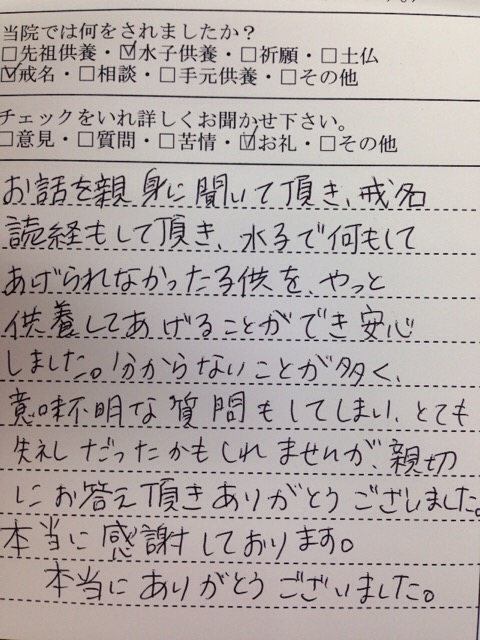 当院では何をされましたか？
□先祖供養・☑水子供養・□祈願・□土仏
☑戒名・□相談・□手元供養・□その他
チェックをいれ詳しくお聞かせ下さい。
□意見・□質問・□苦情・☑お礼・□その他
お話を親身に聞いて頂き、戒名
読経もして頂き、水子で何もして
あげられなかった子供を、やっと
供養してあげることができ安心
しました。分からないことが多く、
意味不明な質問もしてしまい、とても
失礼だったかもしれませんが、親切
にお答え頂きありがとうございました。
本当に感謝しております。
本当にありがとうございました。